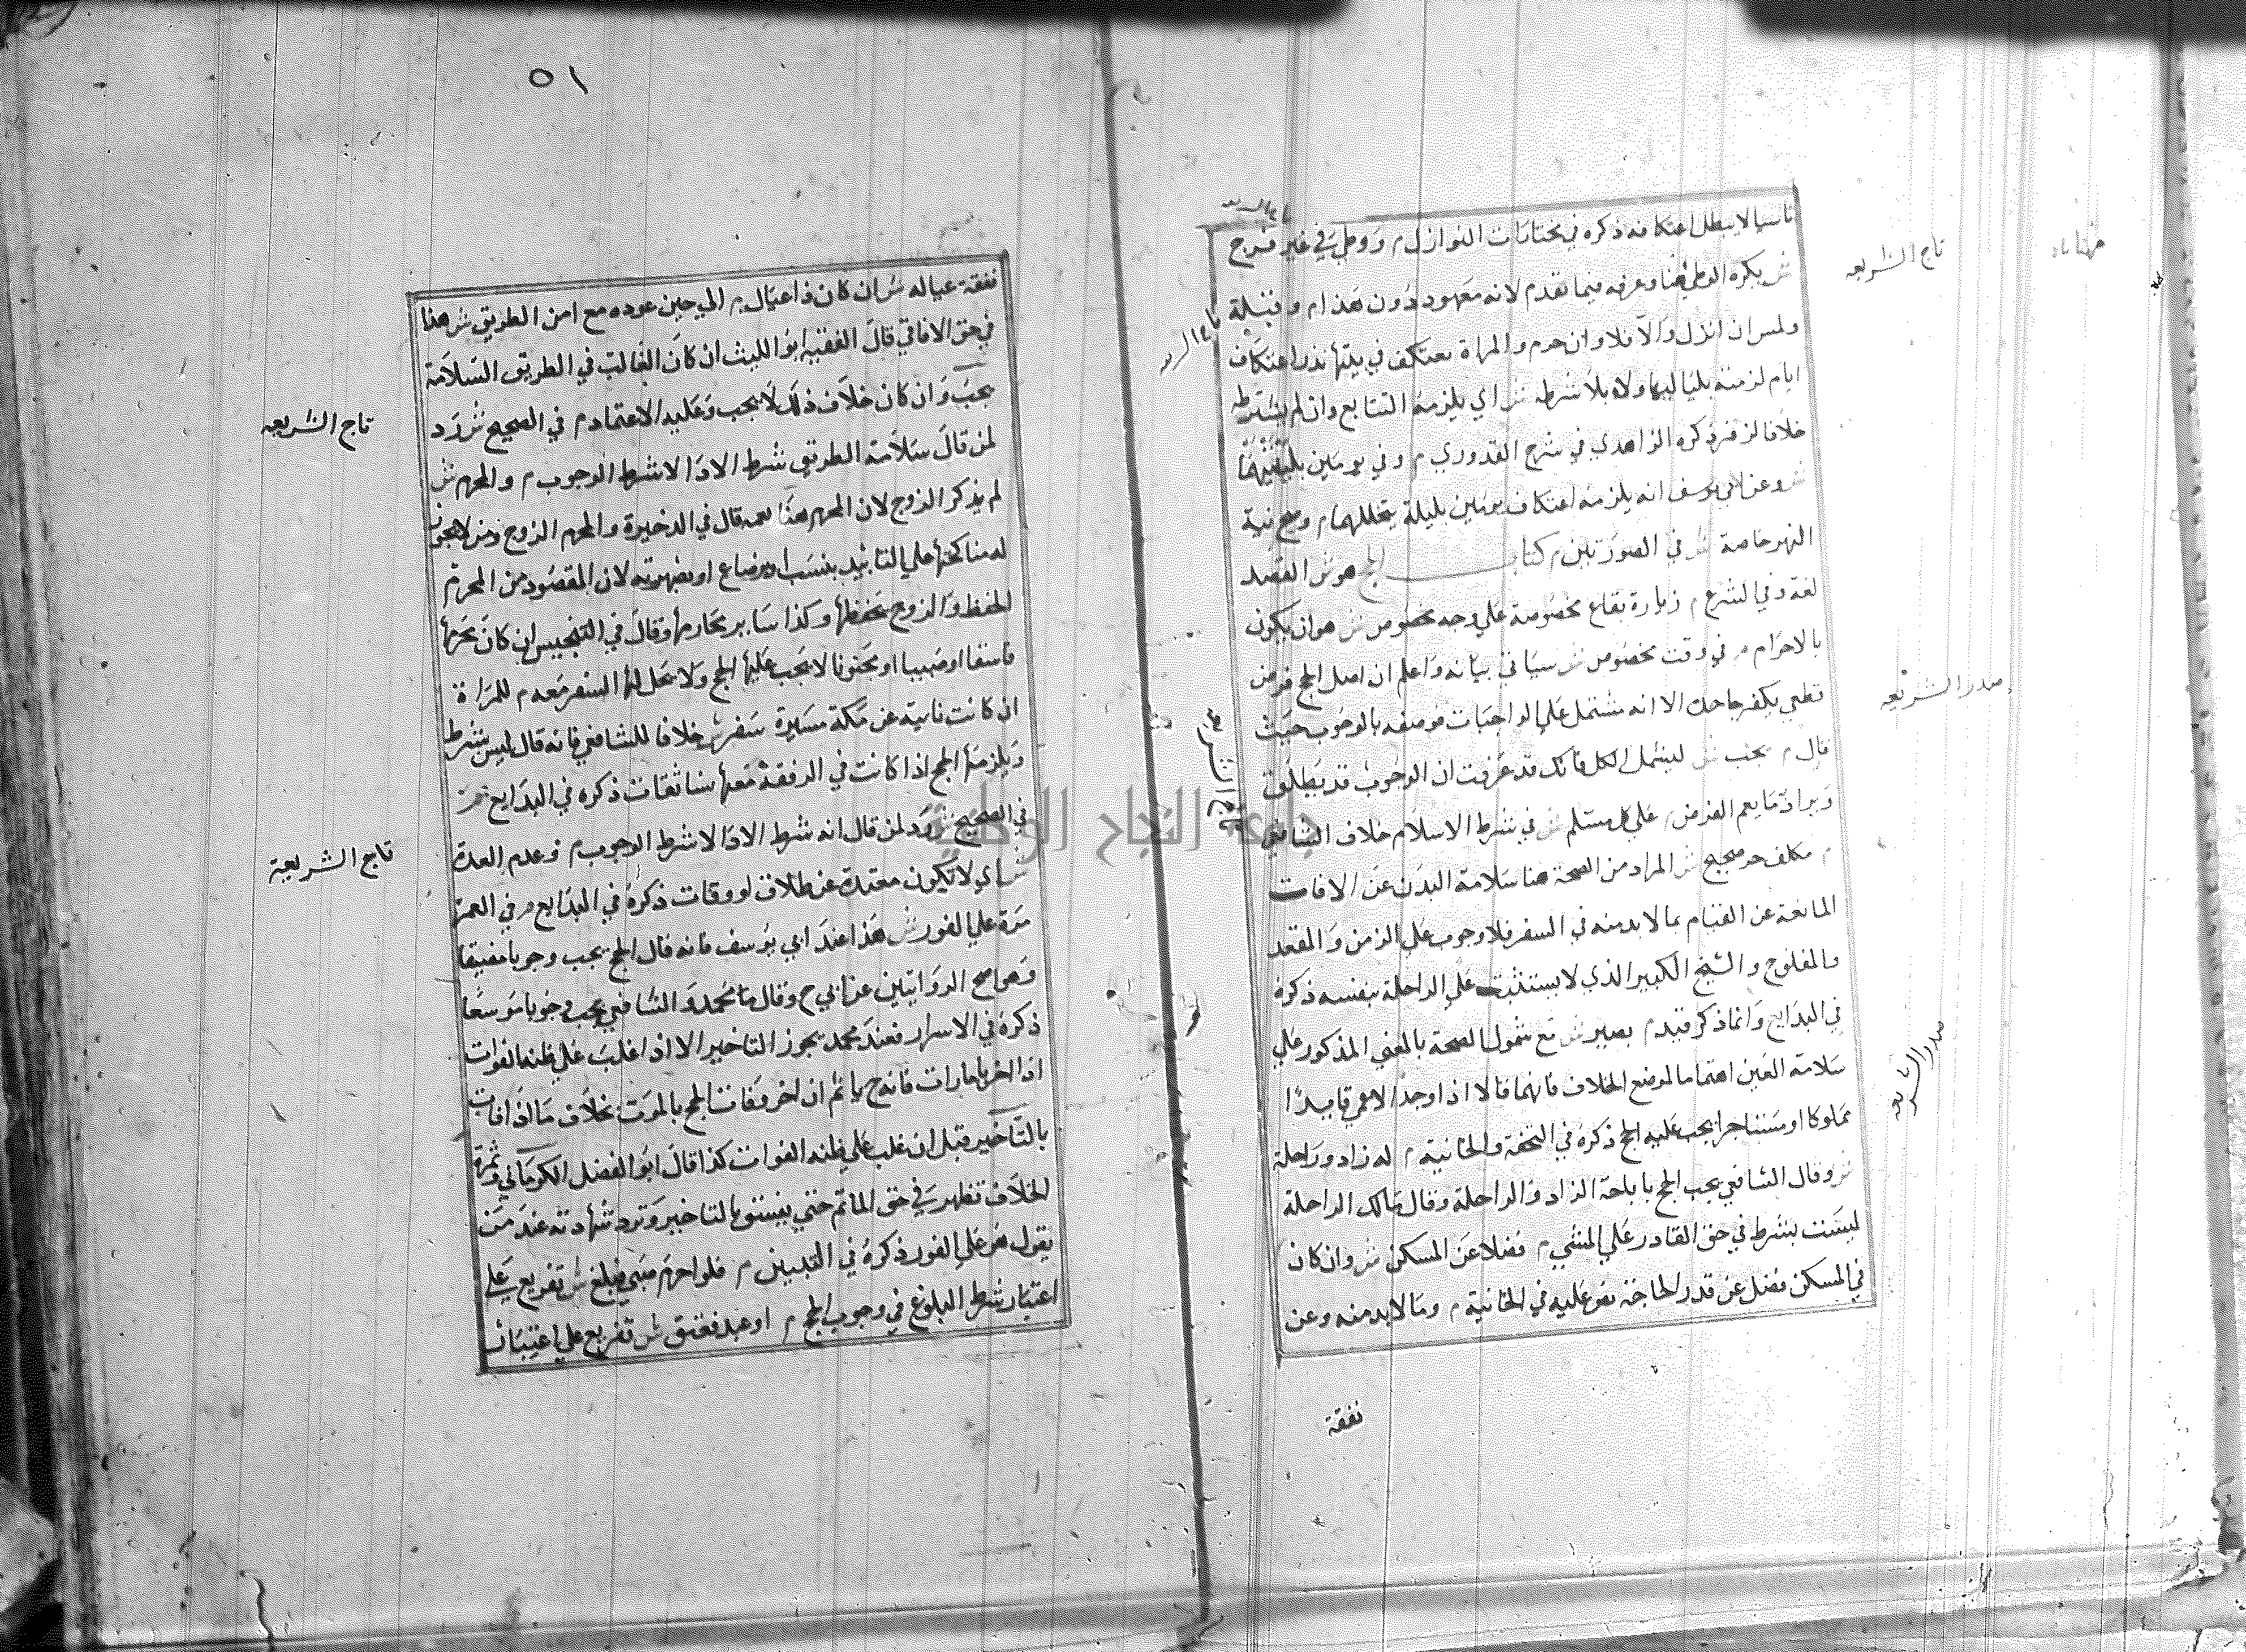 ناسيا لا يبطل اعتكافه ذكره في مختارات النوازل م ووطئ في غير فرج
ش يكره الوطئ هنا وعرفه فيما تقدم لانه معهود دون هذا م وقبلة
ولمس ان انزل والا فلا وان حرم والمراة تعتكف في بيتها نذر اعتكاف
ايام لزمته بلياليها ولاء بلا شرطه ش اي يلزمه التتابع وان لم يشترطه
خلافا لزفر ذكره الزاهدي في شرح القدوري م وفي يومين بليلتيهما
ش وعن ابي يوسف انه يلزمه اعتكاف يومين بليلة يتخللهما م وصح نية
النهر خاصة ش في الصورتين م كتاب الحج هو ش القصد
لغة وفي الشرع م زيارة بقاع مخصوصة علي وجه مخصوص ش هو ان يكون
بالاحرام م في وقت مخصوص ش سياتي بيانه واعلم ان اصل الحج فرض
قطعي يكفر جاحده الا انه مشتمل علي الواجبات فوصفه بالوجوب حيث
قال م يجب ش ليشمل الكل فانك قد عرفت ان الوجوب قد يطلق
ويراد ما يعم الفرض م علي كل مسلم ش في شرط الاسلام خلاف الشافعي
م مكلف حر صحيح ش المراد من الصحة هنا سلامة البدن عن الافات
المانعة عن القيام بما لا بد منه في السفر فلا وجوب علي الزمن والمقعد
والمفلوج والشيخ الكبير الذي لا يستثبت علي الراحلة بنفسه ذكره
في البدايع وانما ذكر قيد م بصير ش مع شمول الصحة بالمعني المذكور علي
سلامة العين اهتماما لموضع الخلاف فانهما قالا اذا وجد الاعمي قايدا
مملوكا او مستاجرا يجب عليه الحج ذكره في التحفة والخانية م له زاد وراحلة
ش وقال الشافعي يجب الحج باباحة الزاد والراحلة وقال مالك الراحلة
ليست بشرط في حق القادر علي المشي م فضلا عن المسكن ش وان كان
في المسكن فضل عن قدر الحاجة نص عليه في الخانية م وما لا بد منه وعن
نفقة
تاج الشريعه
صدر الشريعه
صدر الشريعه
٥١
نفقة عياله ش ان كان ذا عيال م الي حين عوده مع امن الطريق ش هذا
في حق الافاقي قال الفقيه ابو الليث ان كان الغالب في الطريق السلامة
يجب وان كان خلاف ذلك لا يجب وعليه الاعتماد م في الصحيح ش رد
لمن قال سلامة الطريق شرط الادا لا شرط الوجوب م والمحرم ش
لم يذكر الزوج لان المحرم هذا يعمه قال في الذخيرة والمحرم الزوج ومن لا يجوز
له مناكحتها علي التابيد بنسب او رضاع او بصهرية لان المقصود من المحرم
الحفظ والزوج يحفظها وكذا ساير محارمها وقال في التجنيس ان كان محرمها
فاسقا او صبيا او مجنونا لا يجب عليها الحج ولا يحل لها السفر معه م للمراة
ان كانت نايية عن مكة مسيرة سفر ش خلافا للشافعي فانه قال ليس بشرط
ويلزمها الحج اذا كانت في الرفقة معها نسا ثقات ذكره في البدايع م
في الصحيح ش رد لمن قال انه شرط الادا لا شرط الوجوب م وعدم العدة
ش اي لا تكون معتدة عن طلاق او وفات ذكره في البدايع م في العمر
مرة علي الفور ش هذا عند ابي يوسف فانه قال الحج يجب وجوبا مضيقا
وهو اصح الروايتين عن ابي ح وقال محمد والشافعي يجب وجوبا موسعا
ذكره في الاسرار فعند محمد يجوز التاخير الا اذا غلب علي ظنه الفوات
اذا اخر بامارات فانه ح ياثم ان اخر وفات الحج بالموت بخلاف ما اذا فات
بالتاخير قبل ان غلب علي ظنه الفوات كذا قال ابو الفضل الكرماني وثمرة
الخلاف تظهر في حق الماثم حتي يفسق بالتاخير وترد شهادته عند من
يقول هو علي الفور ذكره في التبيين م فلو احرم صبي فبلغ ش تفريع علي
اعتبار شرط البلوغ في وجوب الحج م او عبد فعتق ش تفريع علي اعتبار
تاج الشريعه
تاج الشريعة
جامعة النجاح الوطنية